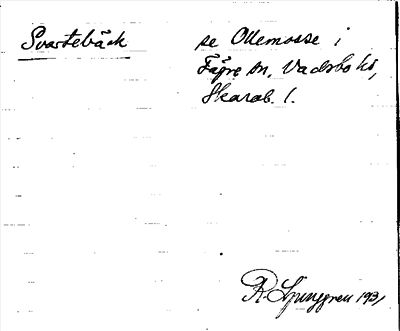 Svartebäck
se Ollemosse i
Fägre sn, Vadsbo hd,
Skarab. l.
R Ljunggren 1931